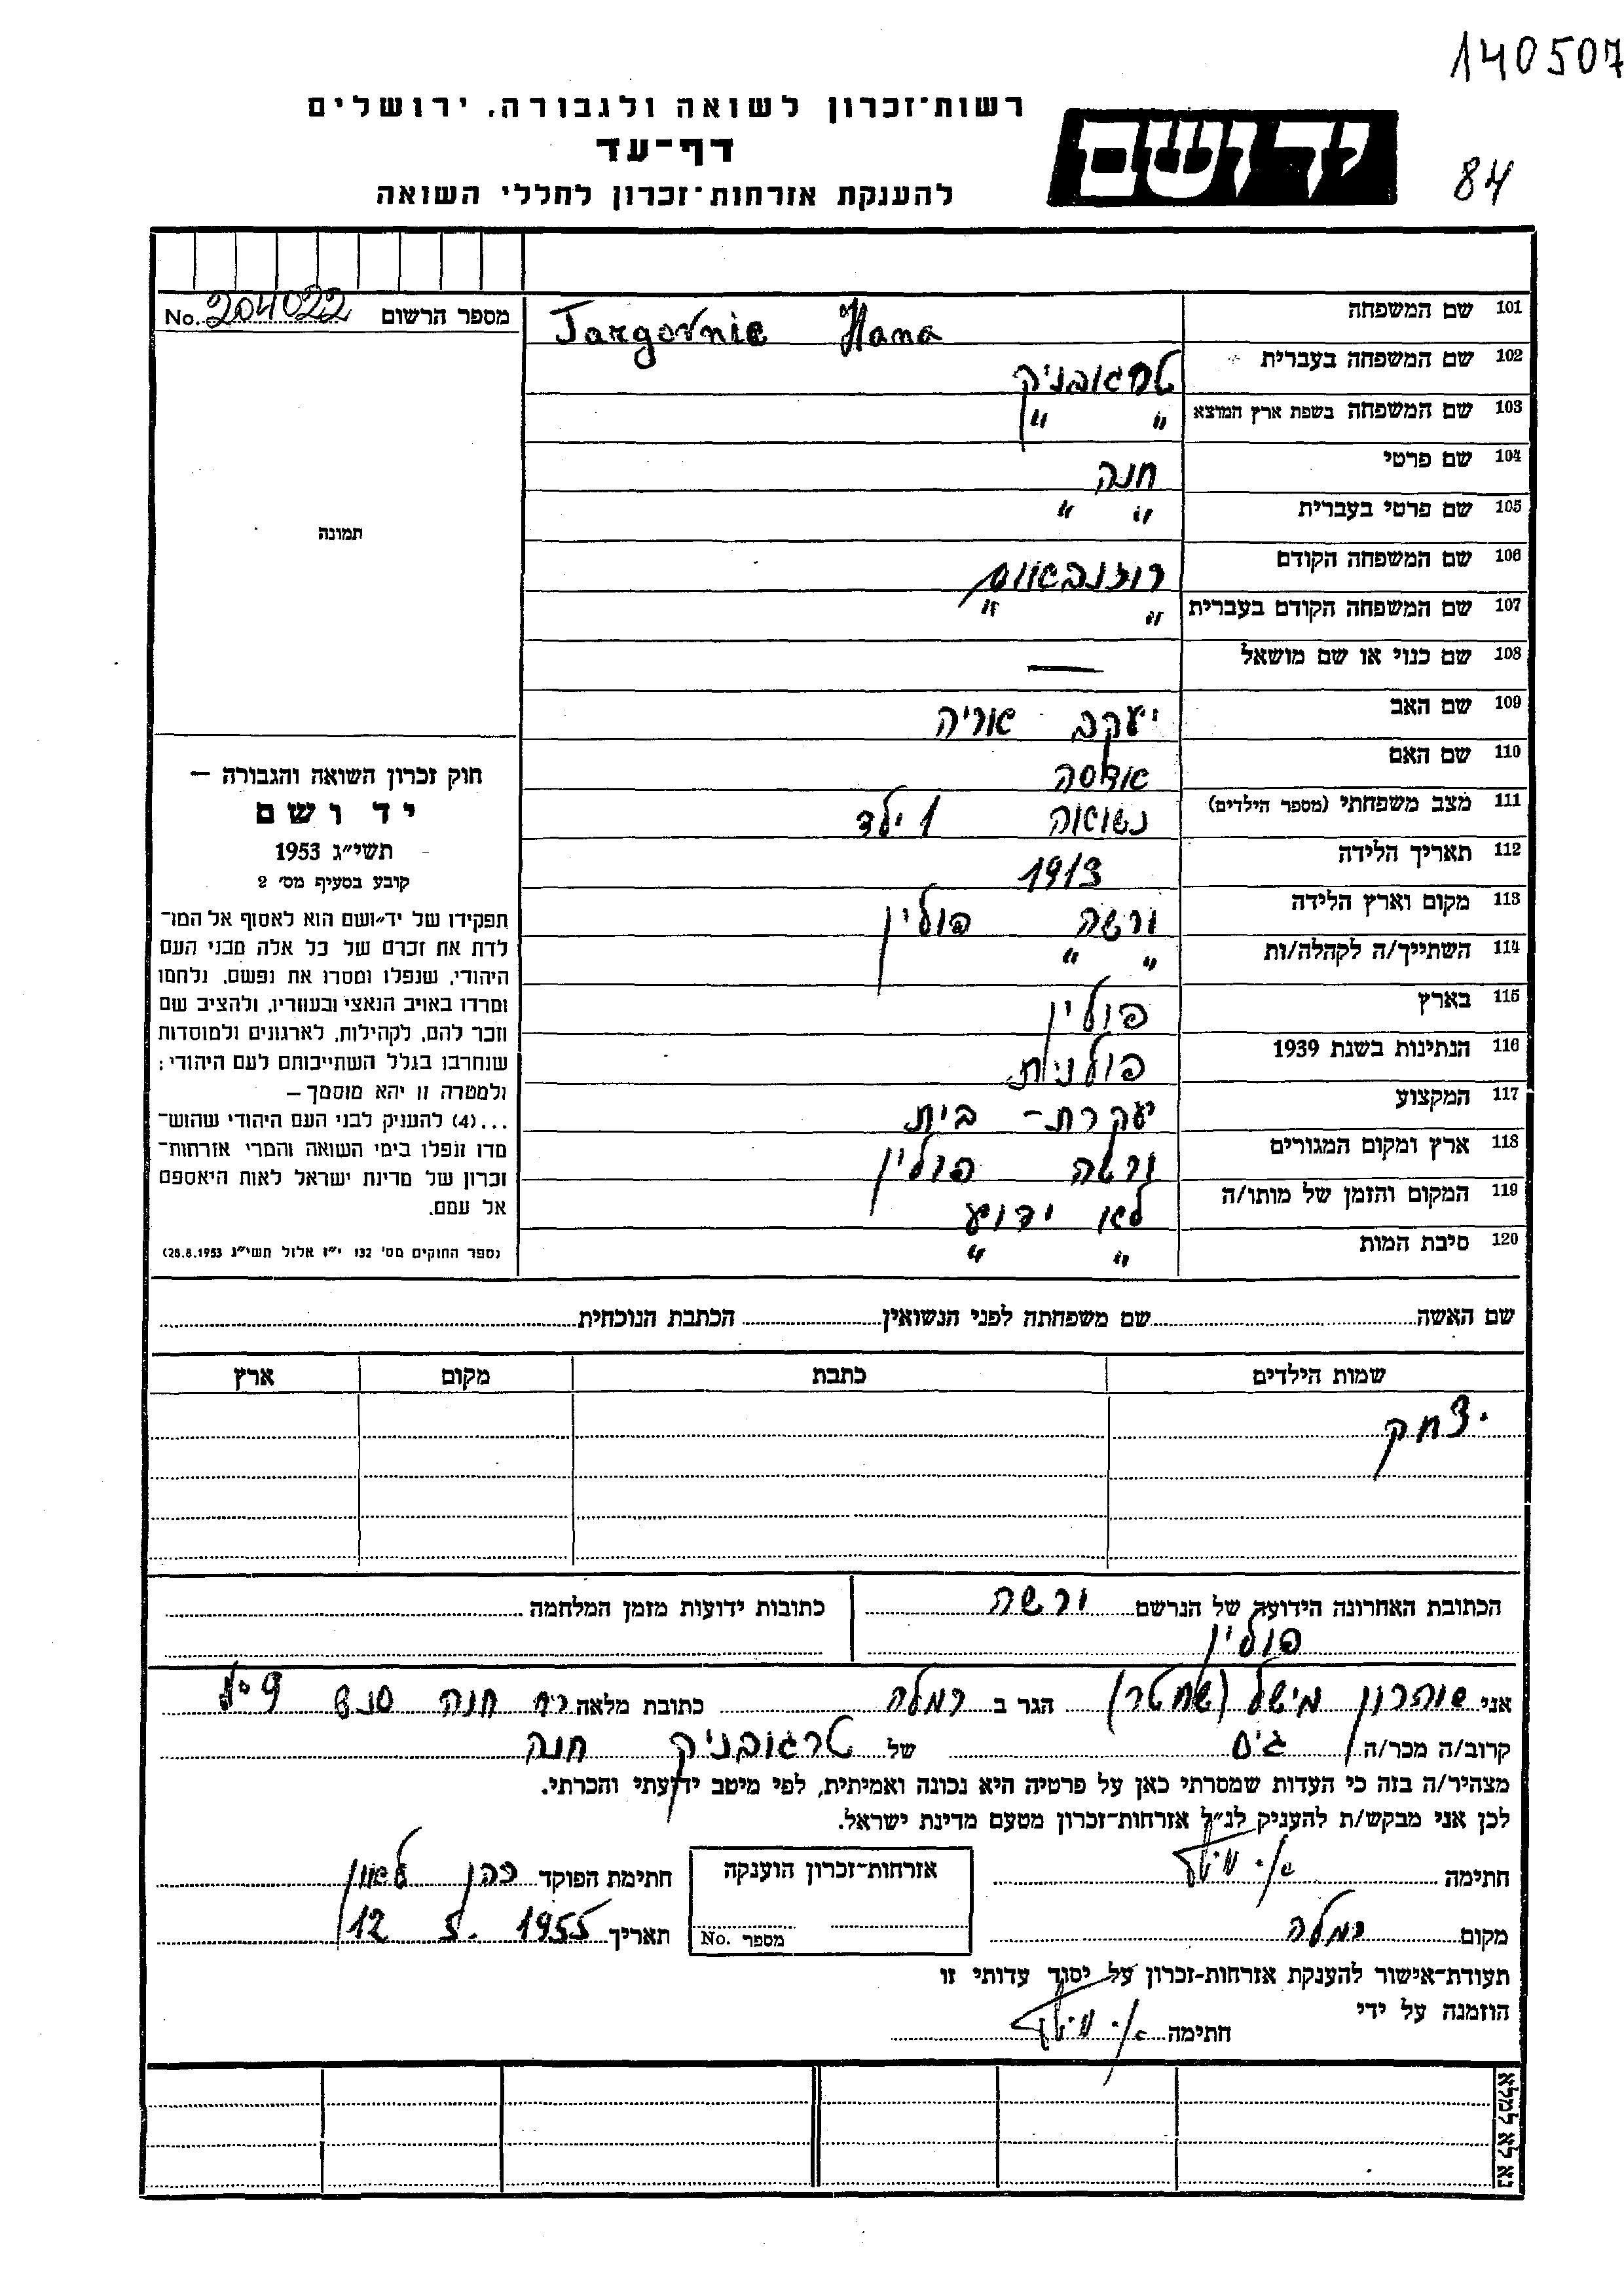 140507
רשות־זכרון לשואה ולגבורה, ירושלים
דף־עד
להענקת אזרחות־זכרון לחללי השואה
יד ושם
84
מספר הרשום No. 204022
101 שם המשפחה Targovnic Hana
102 שם המשפחה בעברית טרגובניק
103 שם המשפחה בשפת ארץ המוצא " "
104 שם פרטי חנה
105 שם פרטי בעברית " "
106 שם המשפחה הקודם רוזנבאום
107 שם המשפחה הקודם בעברית " "
108 שם כנוי או שם מושאל —
109 שם האב יעקב אריה
110 שם האם
111 מצב משפחתי (מספר הילדים) נשואה 1 ילד
112 תאריך הלידה 1913
113 מקום וארץ הלידה ורשה פולין
114 השתייך/ה לקהלה/ות " "
115 בארץ פולין
116 הנתינות בשנת 1939 פולנית
117 המקצוע עקרת-בית
118 ארץ ומקום המגורים ורשה פולין
119 המקום והזמן של מותו/ה לא ידוע
120 סיבת המות " "
תמונה
חוק זכרון השואה והגבורה —
יד ושם
תשי״ג 1953
קובע בסעיף מס׳ 2
תפקידו של יד־ושם הוא לאסוף אל המו־
לדת את זכרם של כל אלה מבני העם
היהודי, שנפלו ומסרו את נפשם, נלחמו
ומרדו באויב הנאצי ובעוזריו, ולהציב שם
וזכר להם, לקהילות, לארגונים ולמוסדות
שנחרבו בגלל השתייכותם לעם היהודי;
ולמטרה זו יהא מוסמך —
...(4) להעניק לבני העם היהודי שהוש־
מדו ונפלו בימי השואה והמרי אזרחות־
זכרון של מדינת ישראל לאות היאספם
אל עמם.
(ספר החוקים מס׳ 132 י״ז אלול תשי״ג 28.8.1953)
שם האשה שם משפחתה לפני הנשואין הכתבת הנוכחית
שמות הילדים כתבת מקום ארץ
יצחק
הכתובת האחרונה הידועה של הנרשם ורשה
פולין
כתובות ידועות מזמן המלחמה
אני מישל (שחטר) הגר ב רמלה כתובת מלאה חנה סנש
קרוב/ה מכר/ה גיס של טרגובניק חנה
מצהיר/ה בזה כי העדות שמסרתי כאן על פרטיה היא נכונה ואמיתית, לפי מיטב ידיעתי והכרתי.
לכן אני מבקש/ת להעניק לנ״ל אזרחות־זכרון מטעם מדינת ישראל.
חתימה
אזרחות־זכרון הוענקה
מספר No.
חתימת הפוקד כהן
מקום רמלה
תאריך 12 5. 1955
תעודת־אישור להענקת אזרחות־זכרון על יסוד עדותי זו
הוזמנה על ידי
חתימה
נא לא למלא